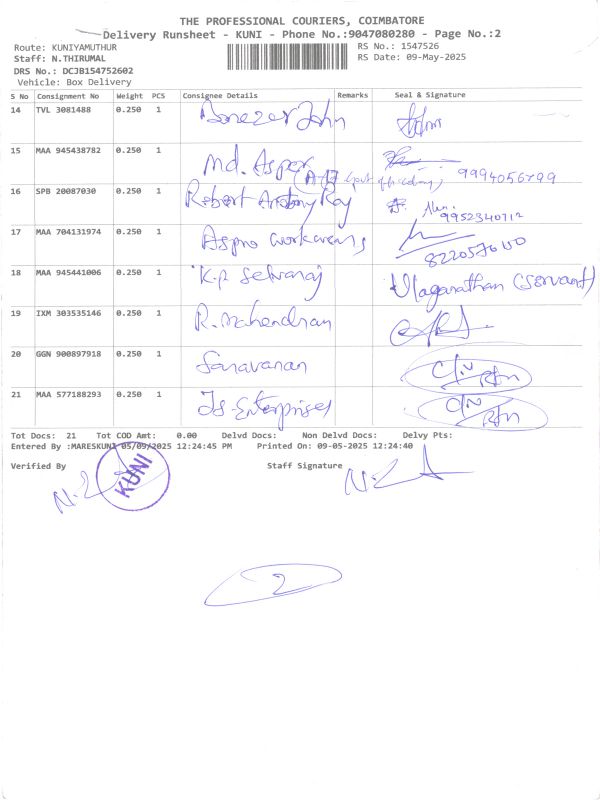 THE PROFESSIONAL COURIERS, COIMBATORE
Delivery Runsheet - KUNI - Phone No.:9047080280 - Page No.:2
Route: KUNIYAMUTHUR RS No.: 1547526
Staff: N.THIRUMAL RS Date: 09-May-2025
DRS No.: DCJB154752602
Vehicle: Box Delivery
S No Consignment No Weight PCS Consignee Details Remarks Seal & Signature
14 TVL 3081488 0.250 1 John
15 MAA 945438782 0.250 1 Md. 9994056799
16 SPB 20087030 0.250 1 Robert Antony Roy 9952340712
17 MAA 704131974 0.250 1 Aspro
18 MAA 945441006 0.250 1 K.P. Selvaraj Ulaganathan (servant)
19 IXM 303535146 0.250 1 R. Mahendran
20 GGN 900897918 0.250 1 Saravanan C/N Rtn
21 MAA 577188293 0.250 1 JS-Enterprises C/N Rtn
Tot Docs: 21 Tot COD Amt: 0.00 Delvd Docs: Non Delvd Docs: Delvy Pts:
Entered By :MARESKUNI 05/09/2025 12:24:45 PM Printed On: 09-05-2025 12:24:40
Verified By Staff Signature
KUNI
2